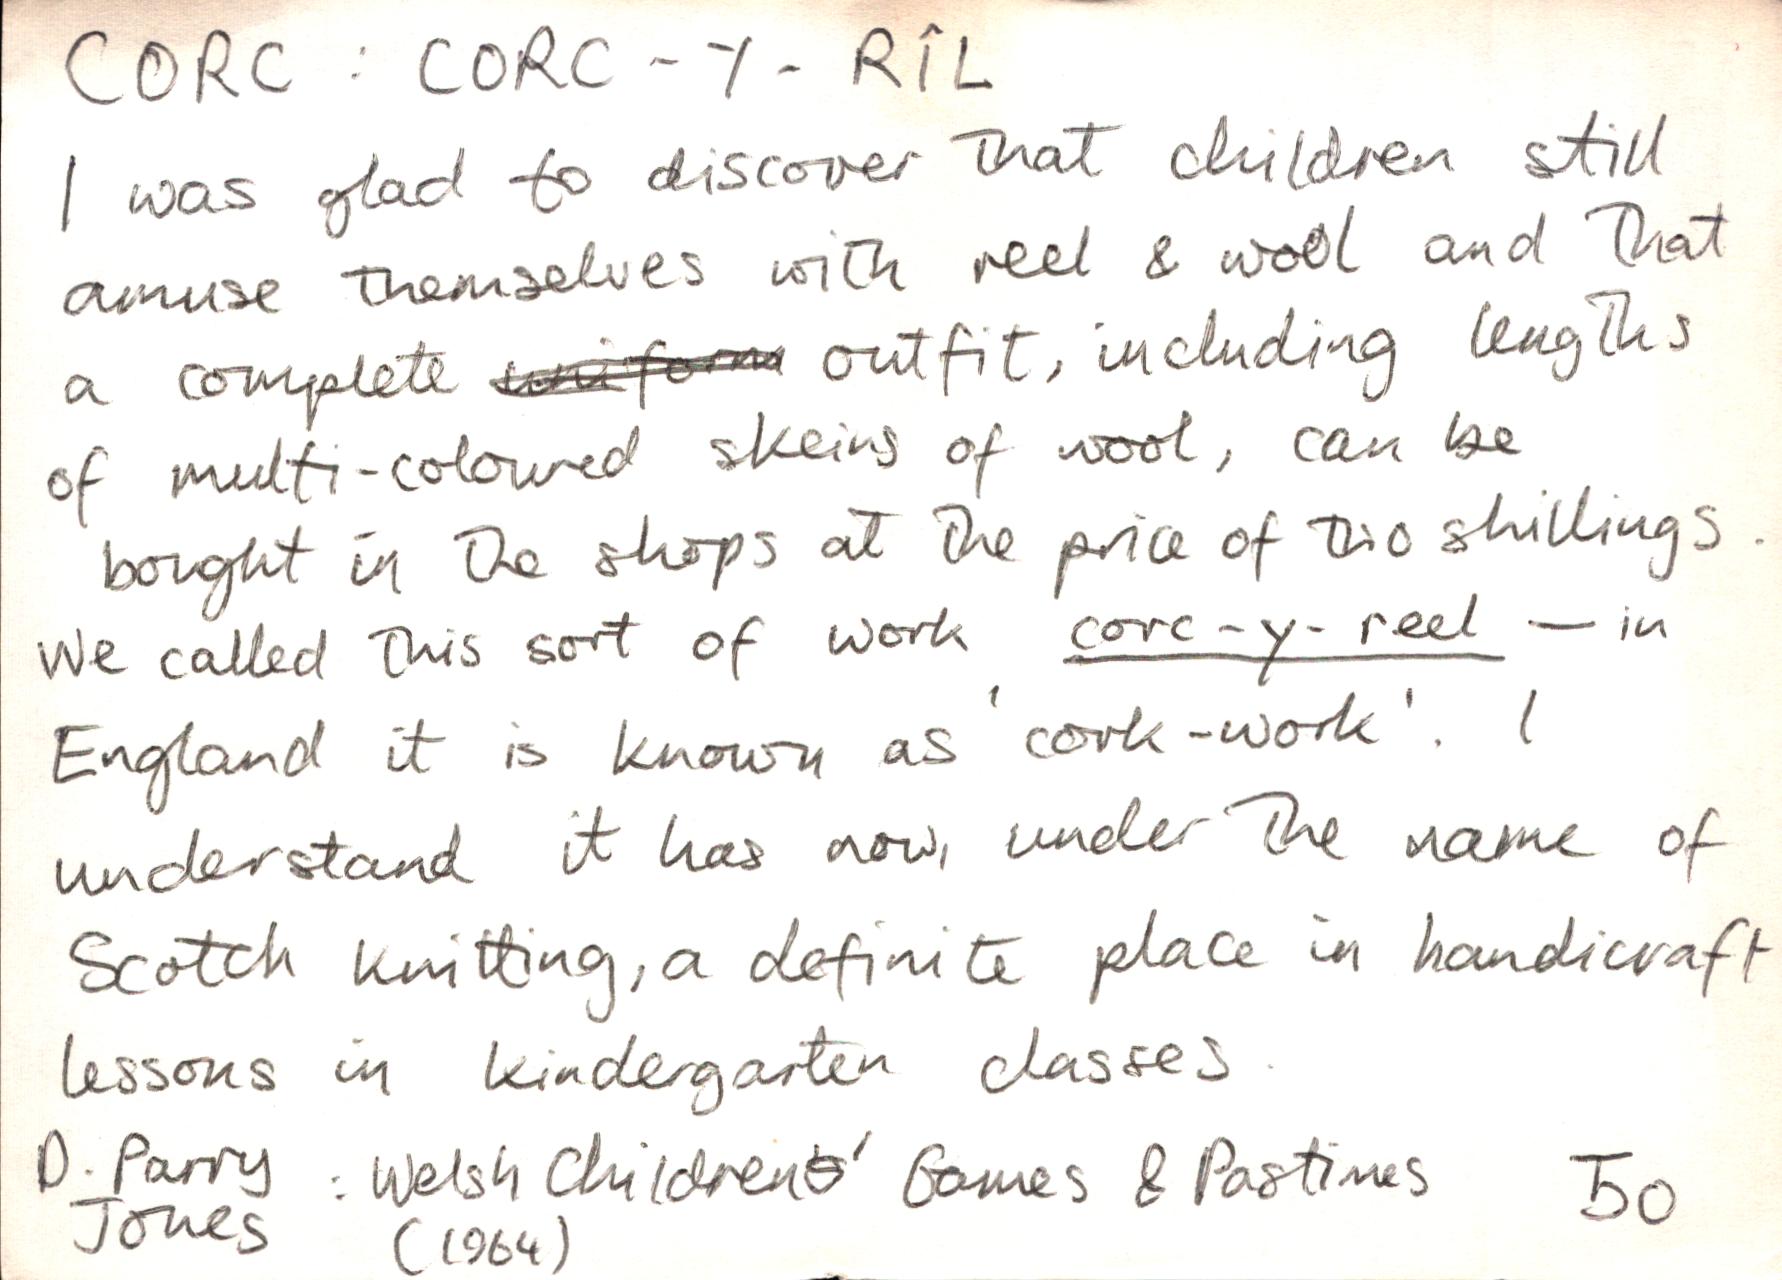 CORC : CORC-Y-RÎL
I was glad to discover that children still
amuse themselves with reel & wool and that
a complete uniform outfit, including lengths
of multi-coloured skeins of wool, can be
bought in the shops at the price of two shillings.
We called this sort of work corc-y-reel — in
England it is known as 'cork-work'. I
understand it has now, under the name of
Scotch knitting, a definite place in handicraft
lessons in kindergarten classes.
D. Parry Jones : Welsh Childrens' Games & Pastimes 50
(1964)